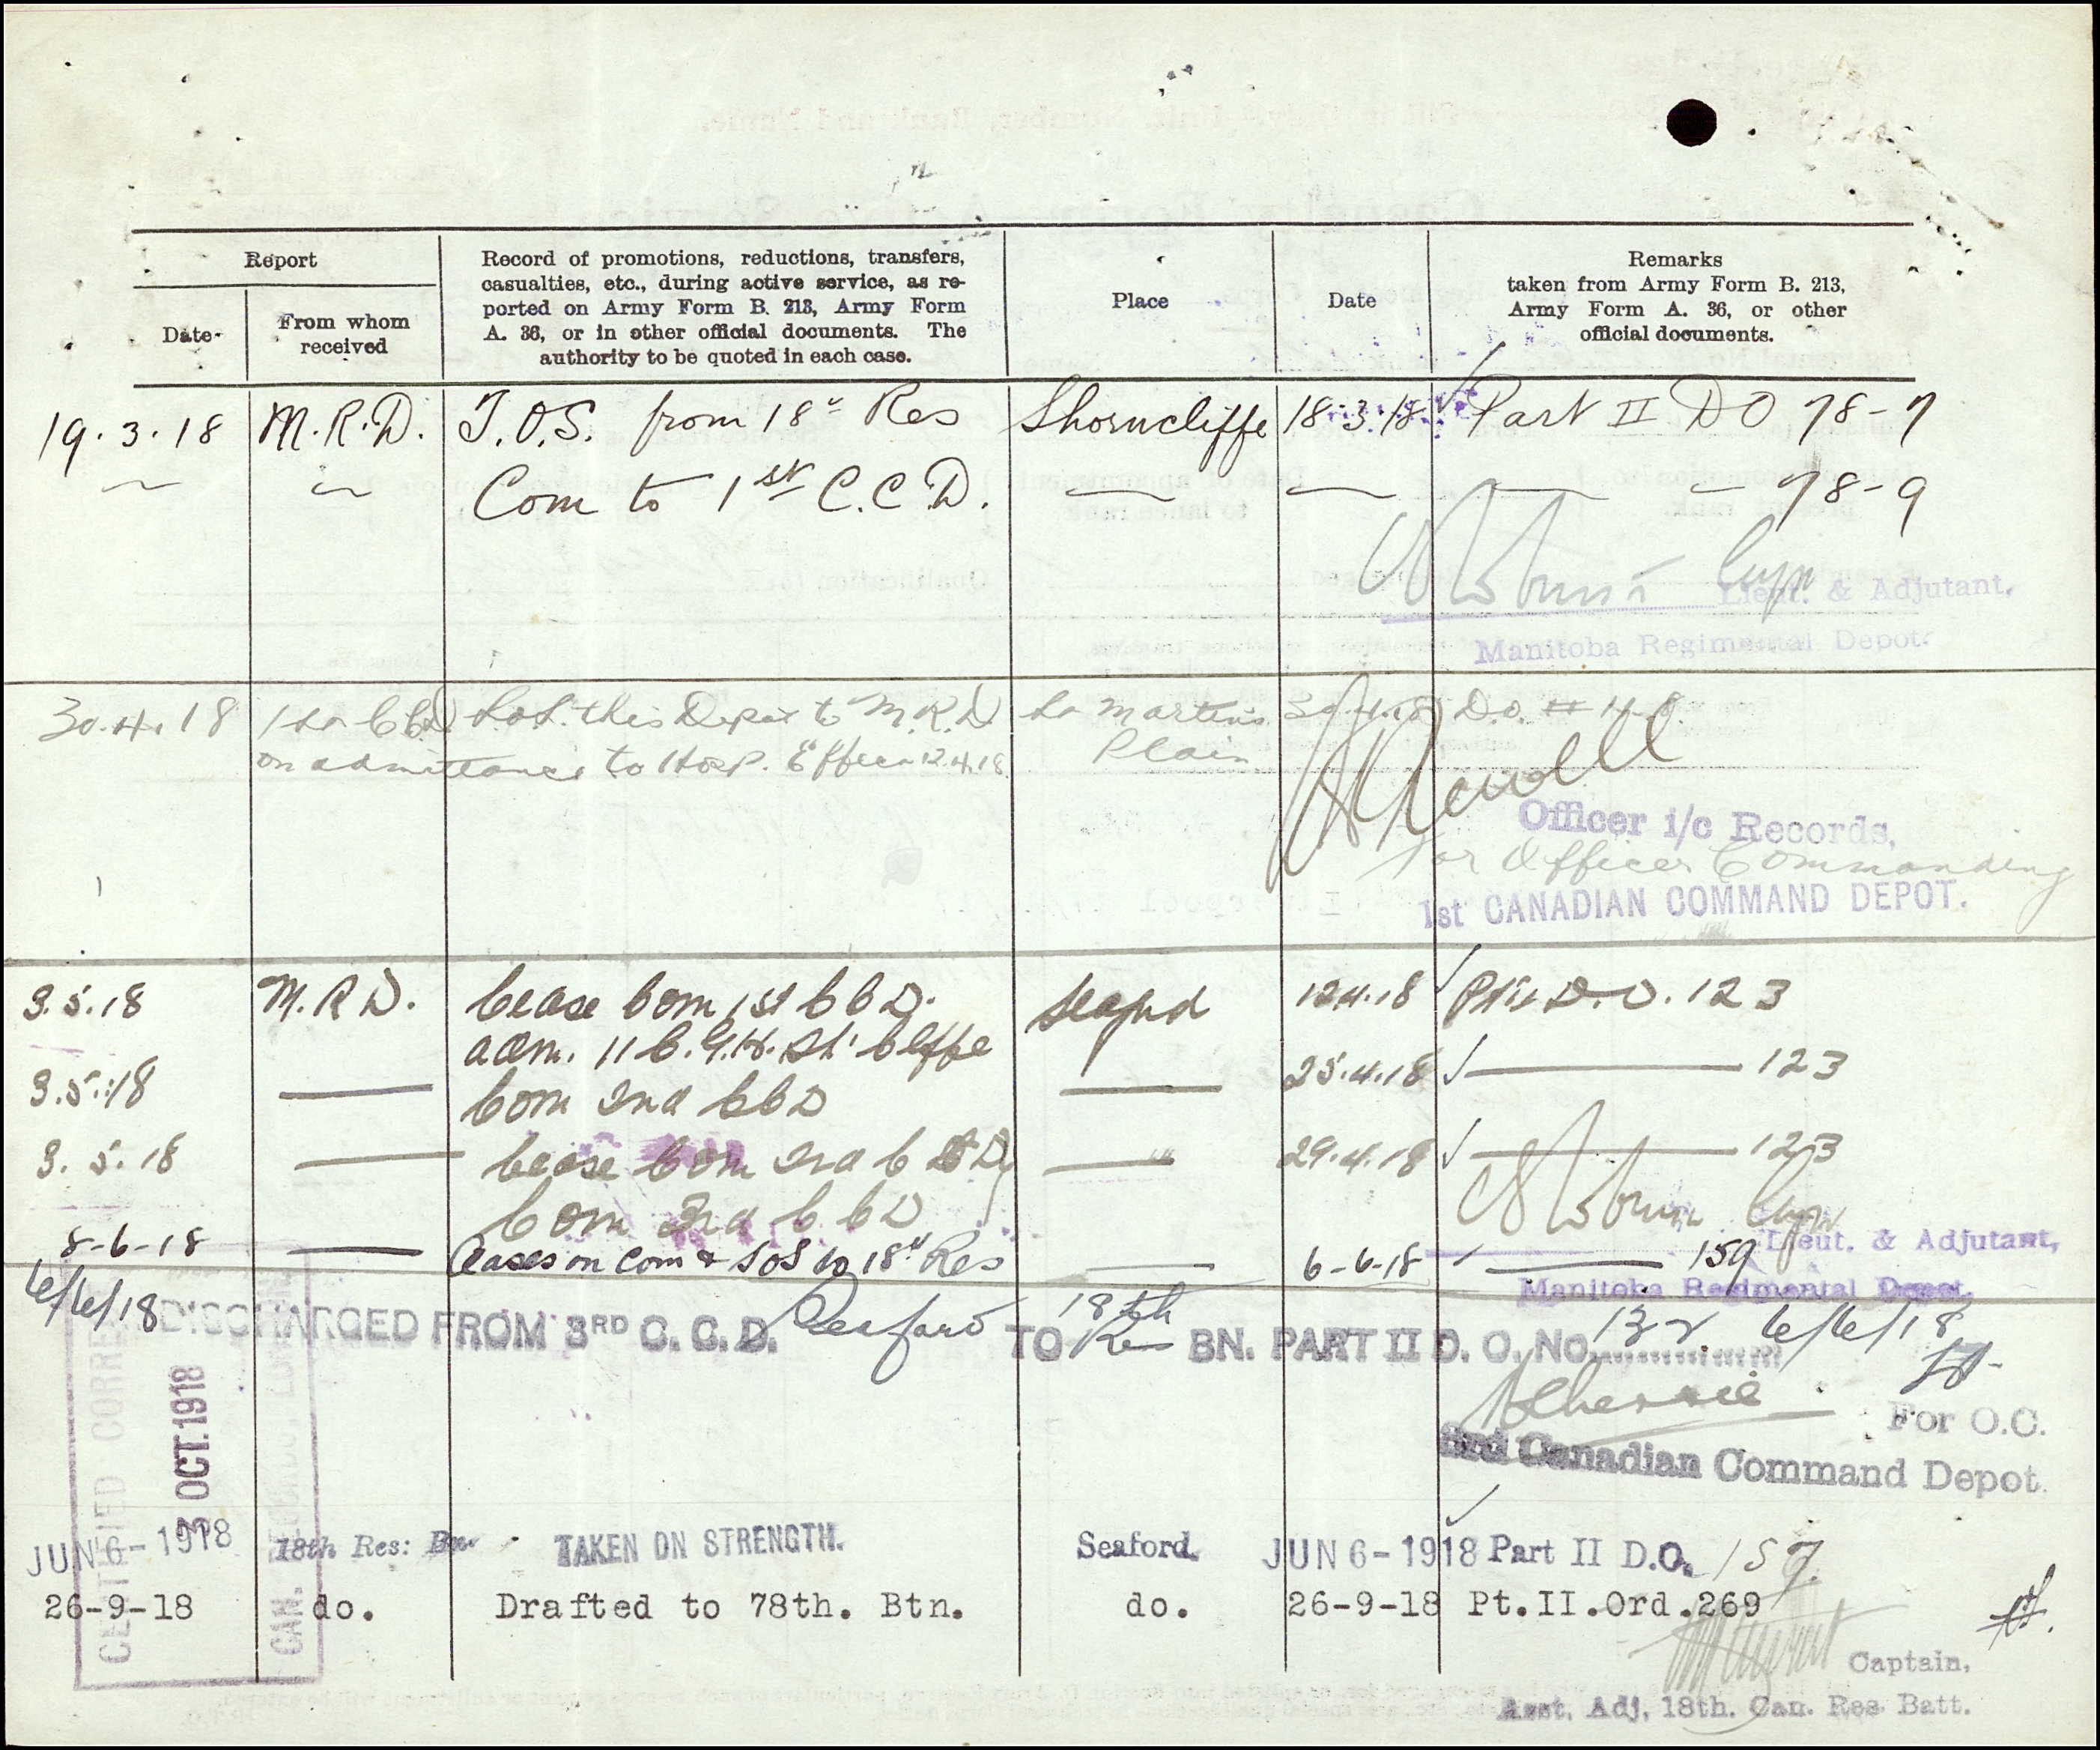 Report
Date
From whom
received
Record of promotions, reductions, transfers,
casualties, etc., during active service, as re-
ported on Army Form B. 213, Army Form
A. 36, or in other official documents. The
authority to be quoted in each case.
Place
Date
Remarks
taken from Army Form B. 213,
Army Form A. 36, or other
official documents.
19.3.18 M.R.D. T.O.S. from 18th Res Shorncliffe 18.3.18 Part II DO 78-7
Com to 1st C.C.D. 78-9
Lieut. & Adjutant.
Manitoba Regimental Depot.
30.4.18 1st CCD S.O.S. this Depot to M.R.D St Martins 30.4.18 D.O. #
on admittance to Hosp. Effec 12.4.18 Plain
Officer i/c Records,
for Officer Commanding
1st CANADIAN COMMAND DEPOT.
3.5.18 M.R.D. Cease Com 1st CCD. Seaford 12.4.18 Pt II D.O. 123
adm. 11 C.G.H. Sh'Cliffe
3.5.18 Com 2nd CCD 25.4.18 123
3.5.18 Cease Com 2nd CCD, 29.4.18 123
Com 3rd CCD
8-6-18 Ceases on Com & SOS to 18th Res 6-6-18 159
Lieut. & Adjutant,
Manitoba Regimental Depot.
6/6/18 DISCHARGED FROM 3RD C.C.D. Seaford TO 18th Res BN. PART II D.O. No. 132 6/6/18
Lt.
For O.C.
3rd Canadian Command Depot.
CERTIFIED CORRECT
3 OCT. 1918
CAN. RECORDS LONDON
JUN 6-1918 18th Res: Bn. TAKEN ON STRENGTH. Seaford. JUN 6-1918 Part II D.O. 157.
26-9-18 do. Drafted to 78th. Btn. do. 26-9-18 Pt.II.Ord.269
Captain,
Asst. Adj, 18th. Can. Res Batt.